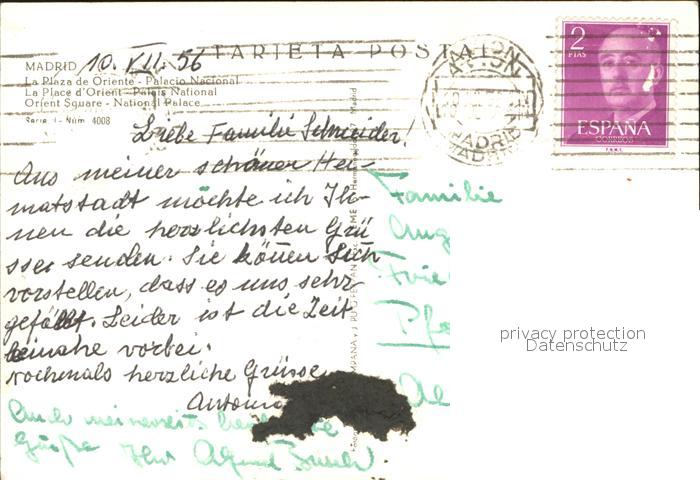 TARJETA POSTAL
MADRID 10. VII. 56
La Plaza de Oriente - Palacio Nacional
La Place d'Orient - Palais National
Orient Square - National Palace
Serie I - Núm 4008
Liebe Familie Schneider!
Aus meiner schöner Hei-
matsstadt möchte ich Ih-
nen die herzlichsten Grü
sse senden. Sie können sich
vorstellen, dass es uns sehr
gefällt. Leider ist die Zeit
beinahe vorbei.
Nochmals herzliche Grüsse
Antonio
Auch meinerseits
Grüße Ihr
AVION
MADRID
2
PTAS
ESPAÑA
CORREOS
F.N.M.T.
Familie
Aug
Frie
Al
privacy protection
Datenschutz